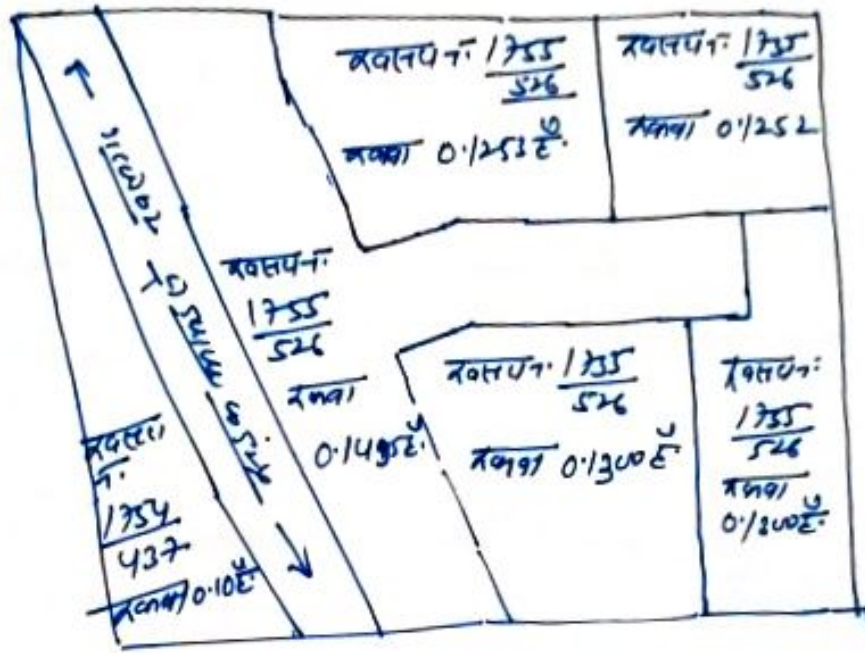 खसरा नं. 1755
526
रकबा 0.1253 हे.
खसरा नं. 1755
526
रकबा 0.1252
खसरा नं.
1755
526
रकबा
0.1495 हे.
खसरा नं. 1755
526
रकबा 0.1300 हे.
खसरा नं.
1755
526
रकबा
0.1300 हे.
खसरा
नं.
1754
437
रकबा 0.10 हे.